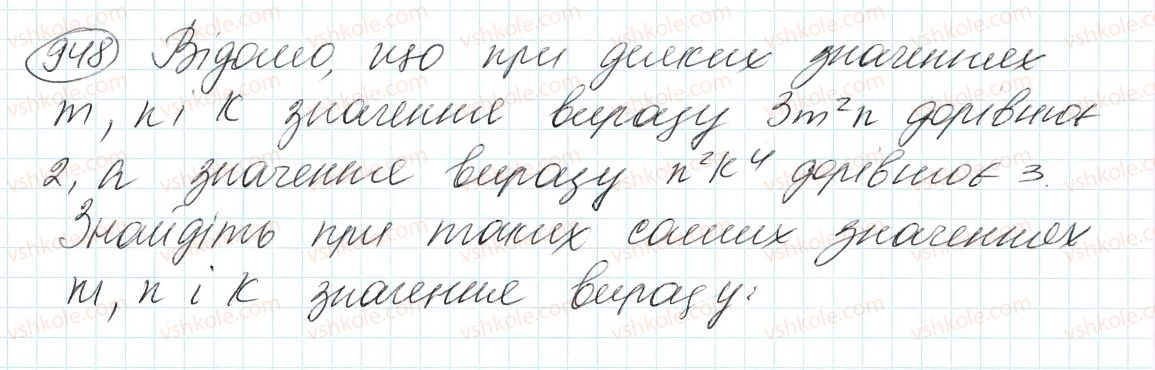 948 Відомо, що при деяких значеннях
m, n і k значення виразу 3m²n дорівнює
2, а значення виразу n²k⁴ дорівнює 3.
Знайдіть при таких самих значеннях
m, n і k значення виразу: